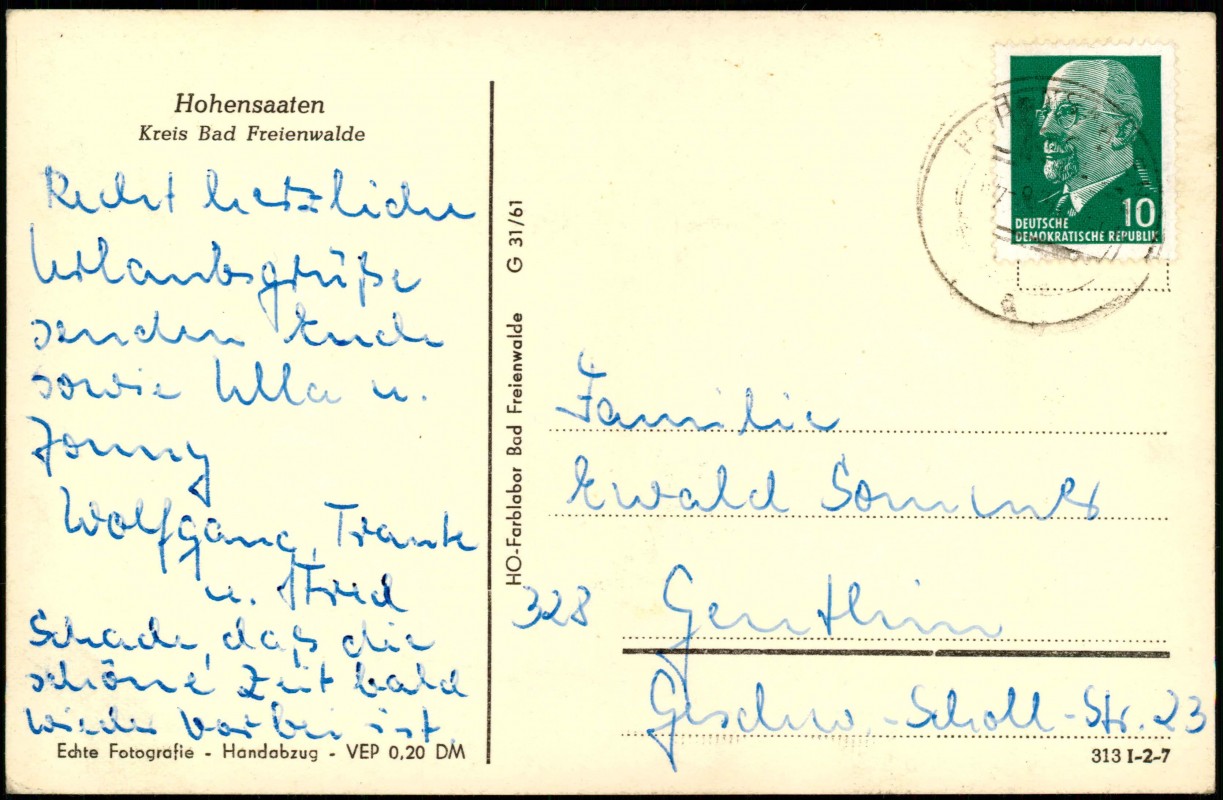 Hohensaaten
Kreis Bad Freienwalde
Recht herzliche
Urlaubsgrüße
senden Euch
sowie Ulla u.
Jonny
Wolfgang, Traute
u. Fred
Schade, daß die
schöne Zeit bald
wieder vorbei ist.
Echte Fotografie - Handabzug - VEP 0,20 DM
HO-Farblabor Bad Freienwalde G 31/61
10
DEUTSCHE
DEMOKRATISCHE REPUBLIK
Familie
Ewald Sommer
328 Genthin
Geschw.-Scholl-Str. 23
313 I-2-7